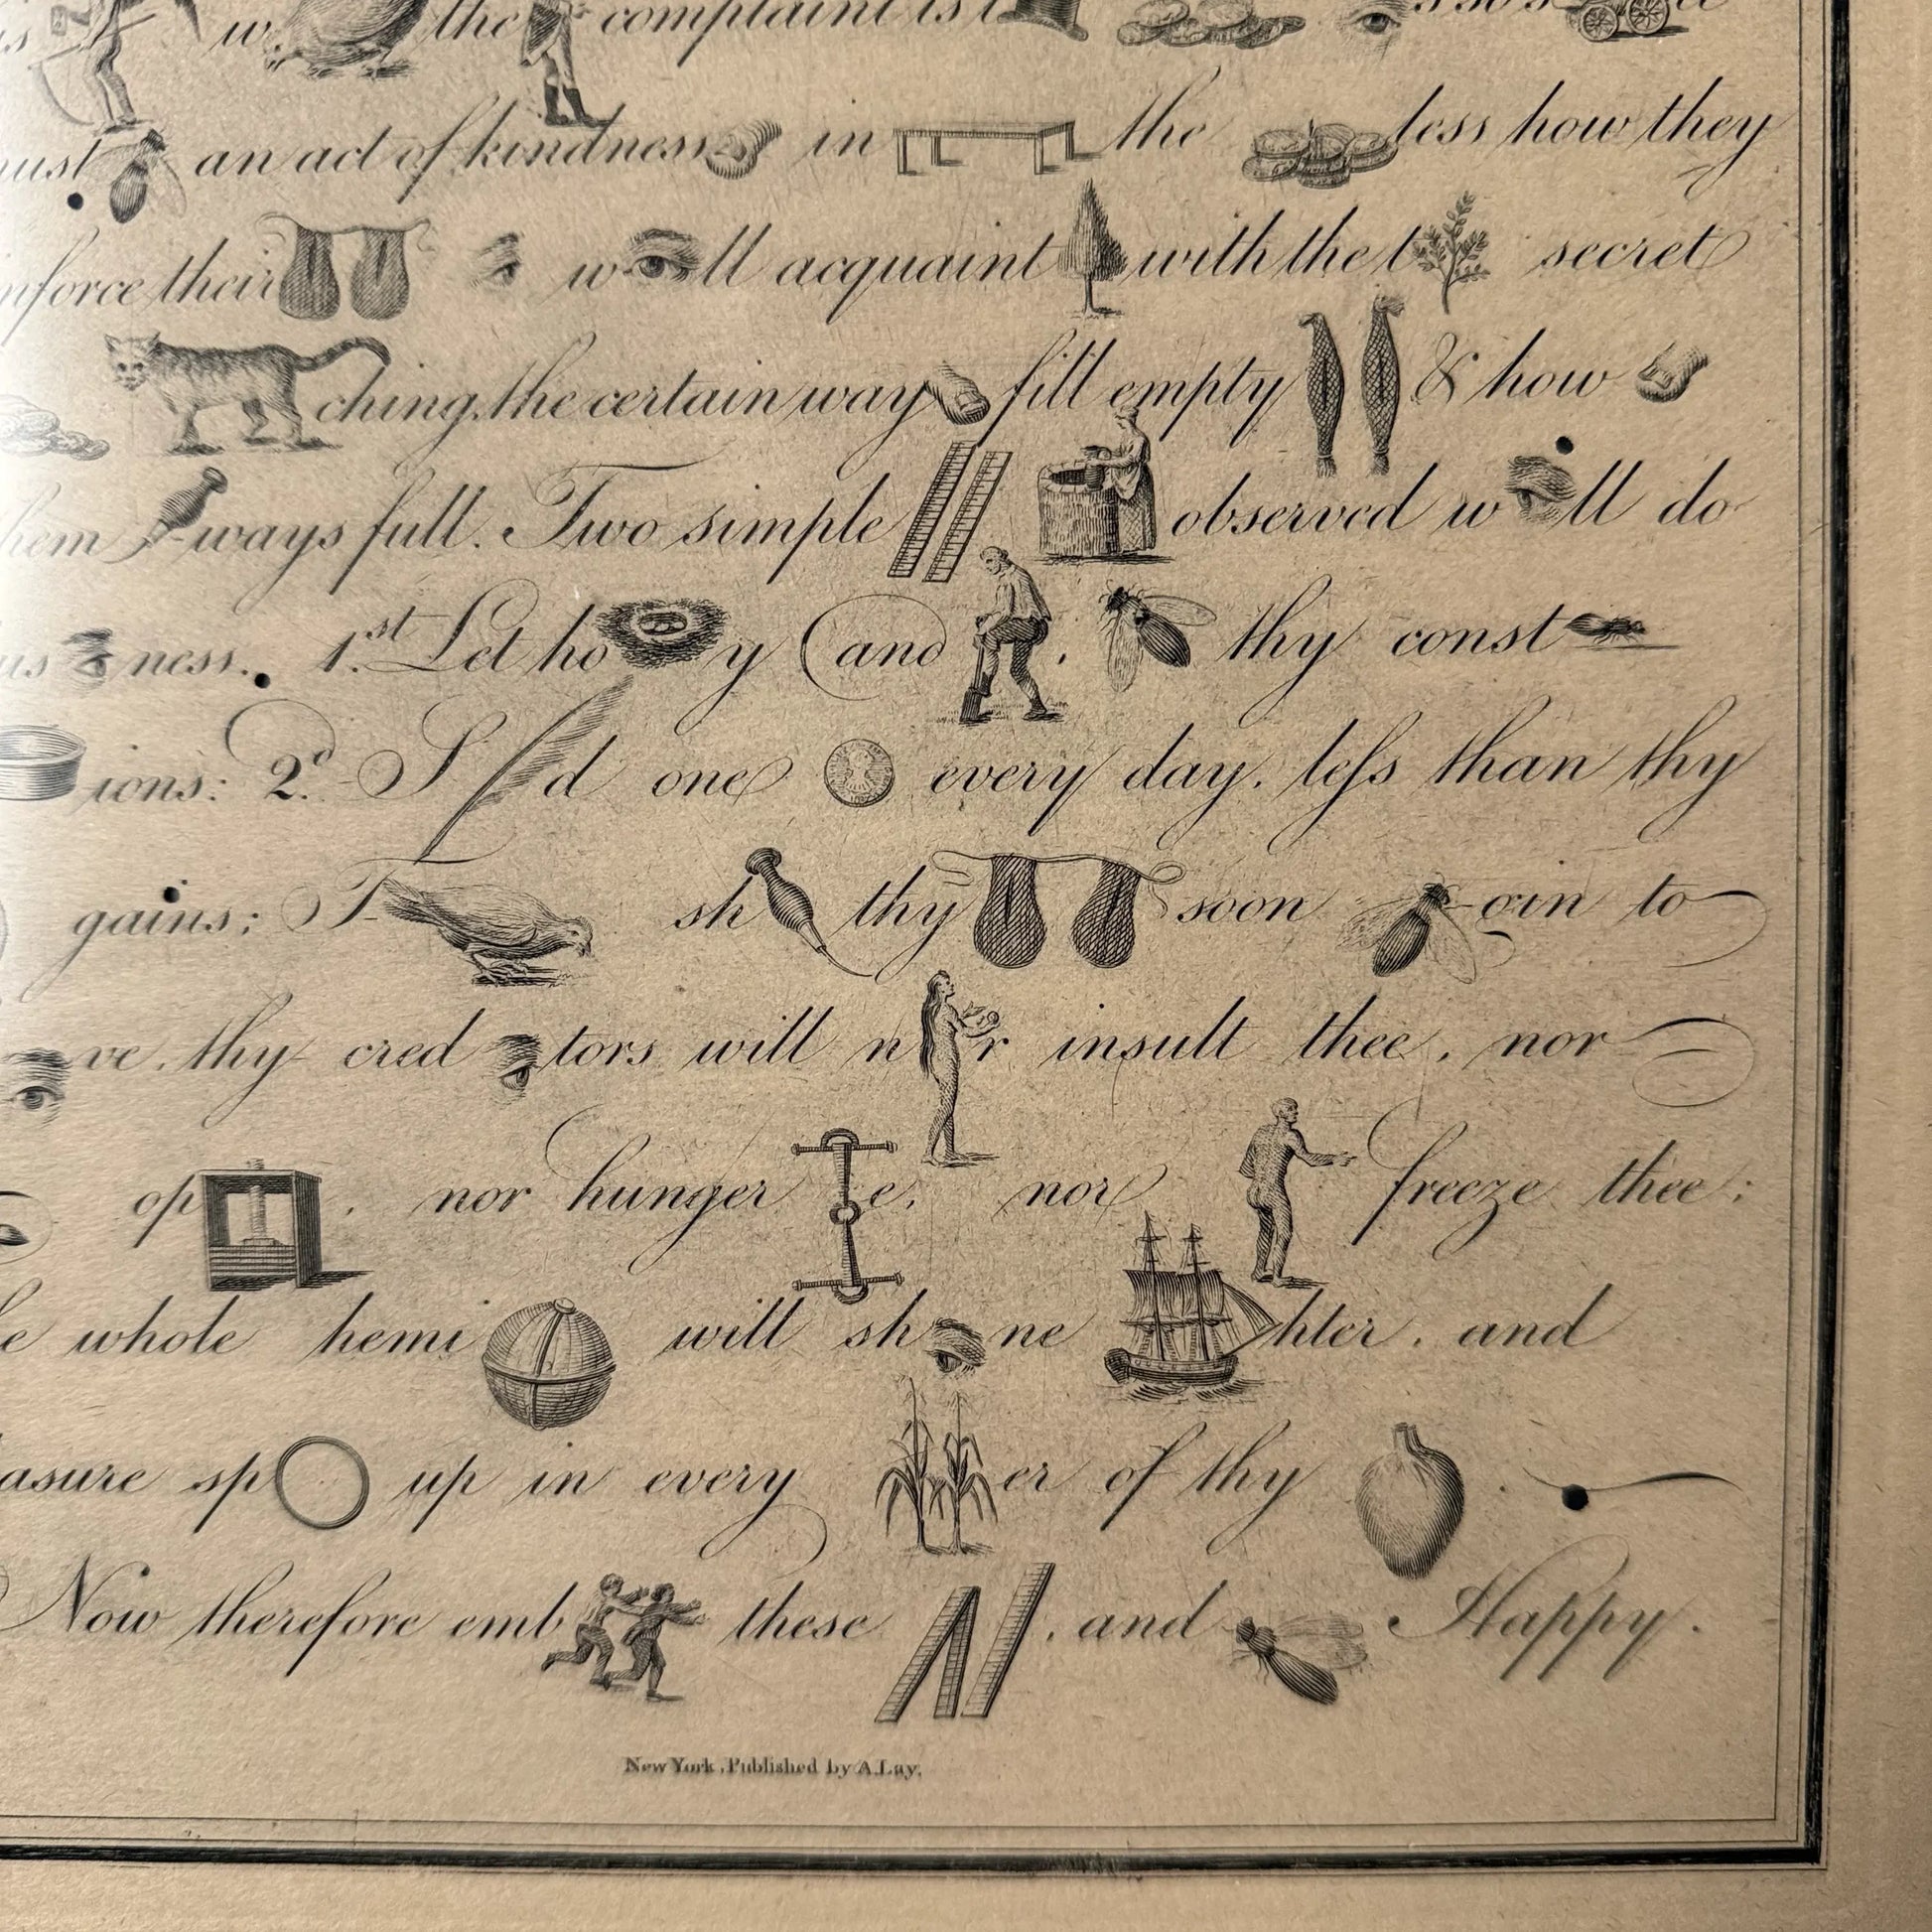 w the complaint is t
an act of kindness in the less how they
their w ll acquaint with the t secret
ching the certain way fill empty & how
ways full. Two simple observed w ll do
ness. 1.st Let ho y (and . thy const
ions: 2.d S d one every day. leſs than thy
gains; T sh thy soon gin to
ve, thy cred tors will n r insult thee, nor
op , nor hunger e, nor freeze thee;
whole hemi will sh ne hter, and
asure sp up in every er of thy .
Now therefore emb these , and Happy.
New York, Published by A.Lay.